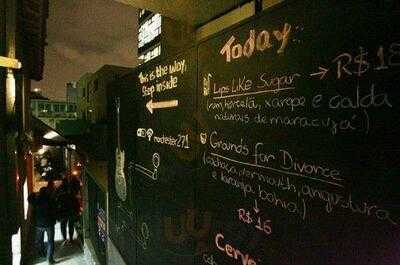 Today:
This is the way,
Step inside
rochester271
Lips Like Sugar → R$18
(rum, hortelã, xarope e calda
naturais de maracujá)
Grounds for Divorce
(cachaça, vermouth, angustura
e laranja bahia.)
R$16
Cerve